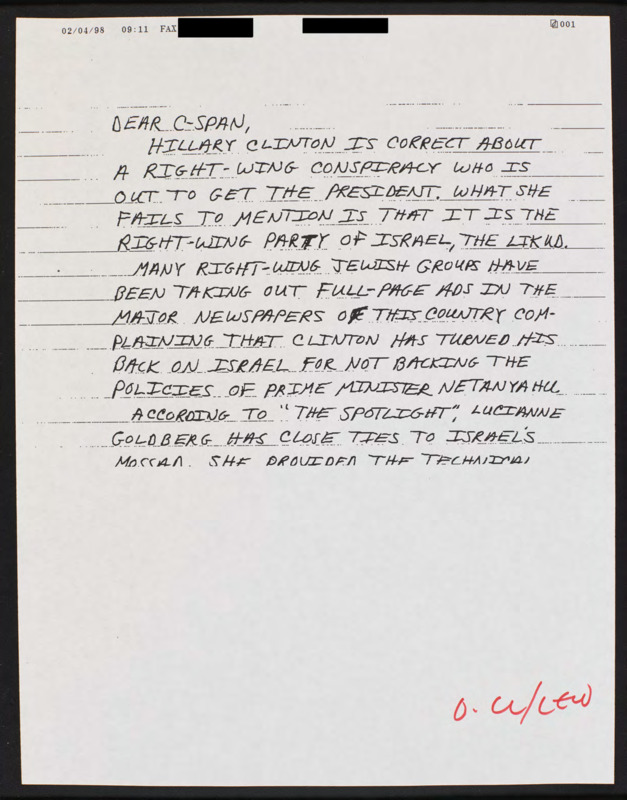 02/04/98 09:11 FAX 001
DEAR C-SPAN,
HILLARY CLINTON IS CORRECT ABOUT
A RIGHT-WING CONSPIRACY WHO IS
OUT TO GET THE PRESIDENT. WHAT SHE
FAILS TO MENTION IS THAT IT IS THE
RIGHT-WING PARTY OF ISRAEL, THE LIKUD.
MANY RIGHT-WING JEWISH GROUPS HAVE
BEEN TAKING OUT FULL-PAGE ADS IN THE
MAJOR NEWSPAPERS OF THIS COUNTRY COM-
PLAINING THAT CLINTON HAS TURNED HIS
BACK ON ISRAEL FOR NOT BACKING THE
POLICIES OF PRIME MINISTER NETANYAHU.
ACCORDING TO "THE SPOTLIGHT", LUCIANNE
GOLDBERG HAS CLOSE TIES TO ISRAEL'S
MOSSAD. SHE PROVIDED THE TECHNICAL